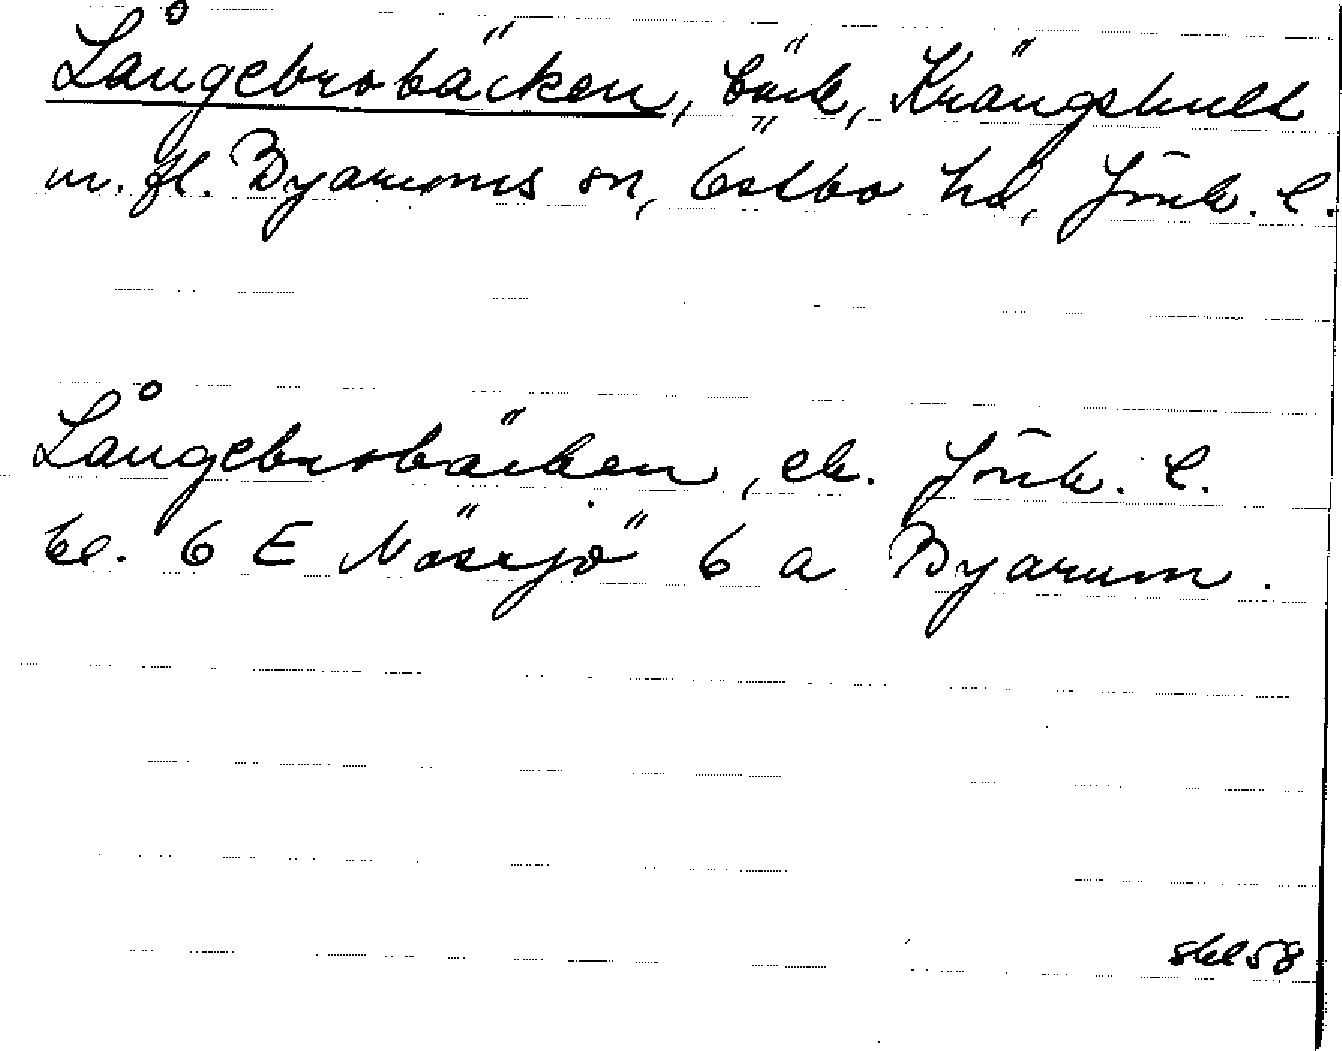 Långebrobäcken, bäck, Krängshult
m. fl. Byarums sn, Östbo hd, Jönk. l.
Långebrobäcken, ek. Jönk. l.
bl. 6 E Nässjö 6 a Byarum.
skl 58